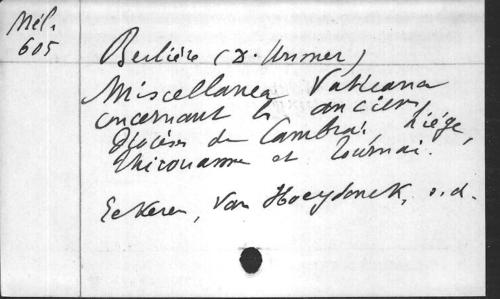 Mél.
605
Berlière (D. Ursmer)
Miscellanea Vaticana
concernant les anciens
diocèses de Cambrai, Liége,
Thérouanne et Tournai.
Eekeren, Van Hoeydonck, s.d.